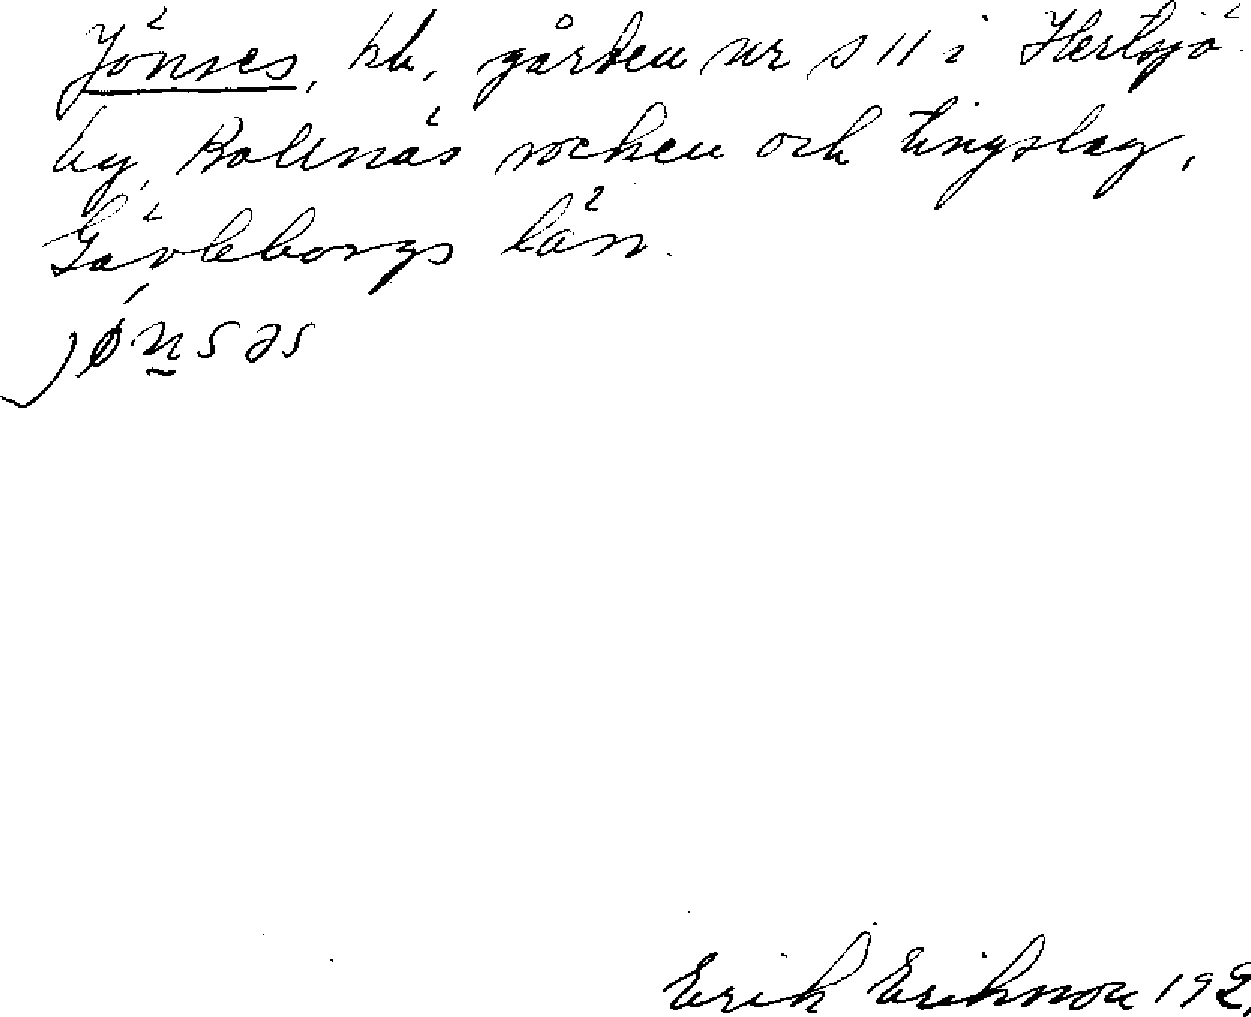 Jönses, kh, gården nr s 11 i Hertsjö
by, Bollnäs socken och tingslag,
Gävleborgs län.
jǿn̲səs
Erik Erikson 192